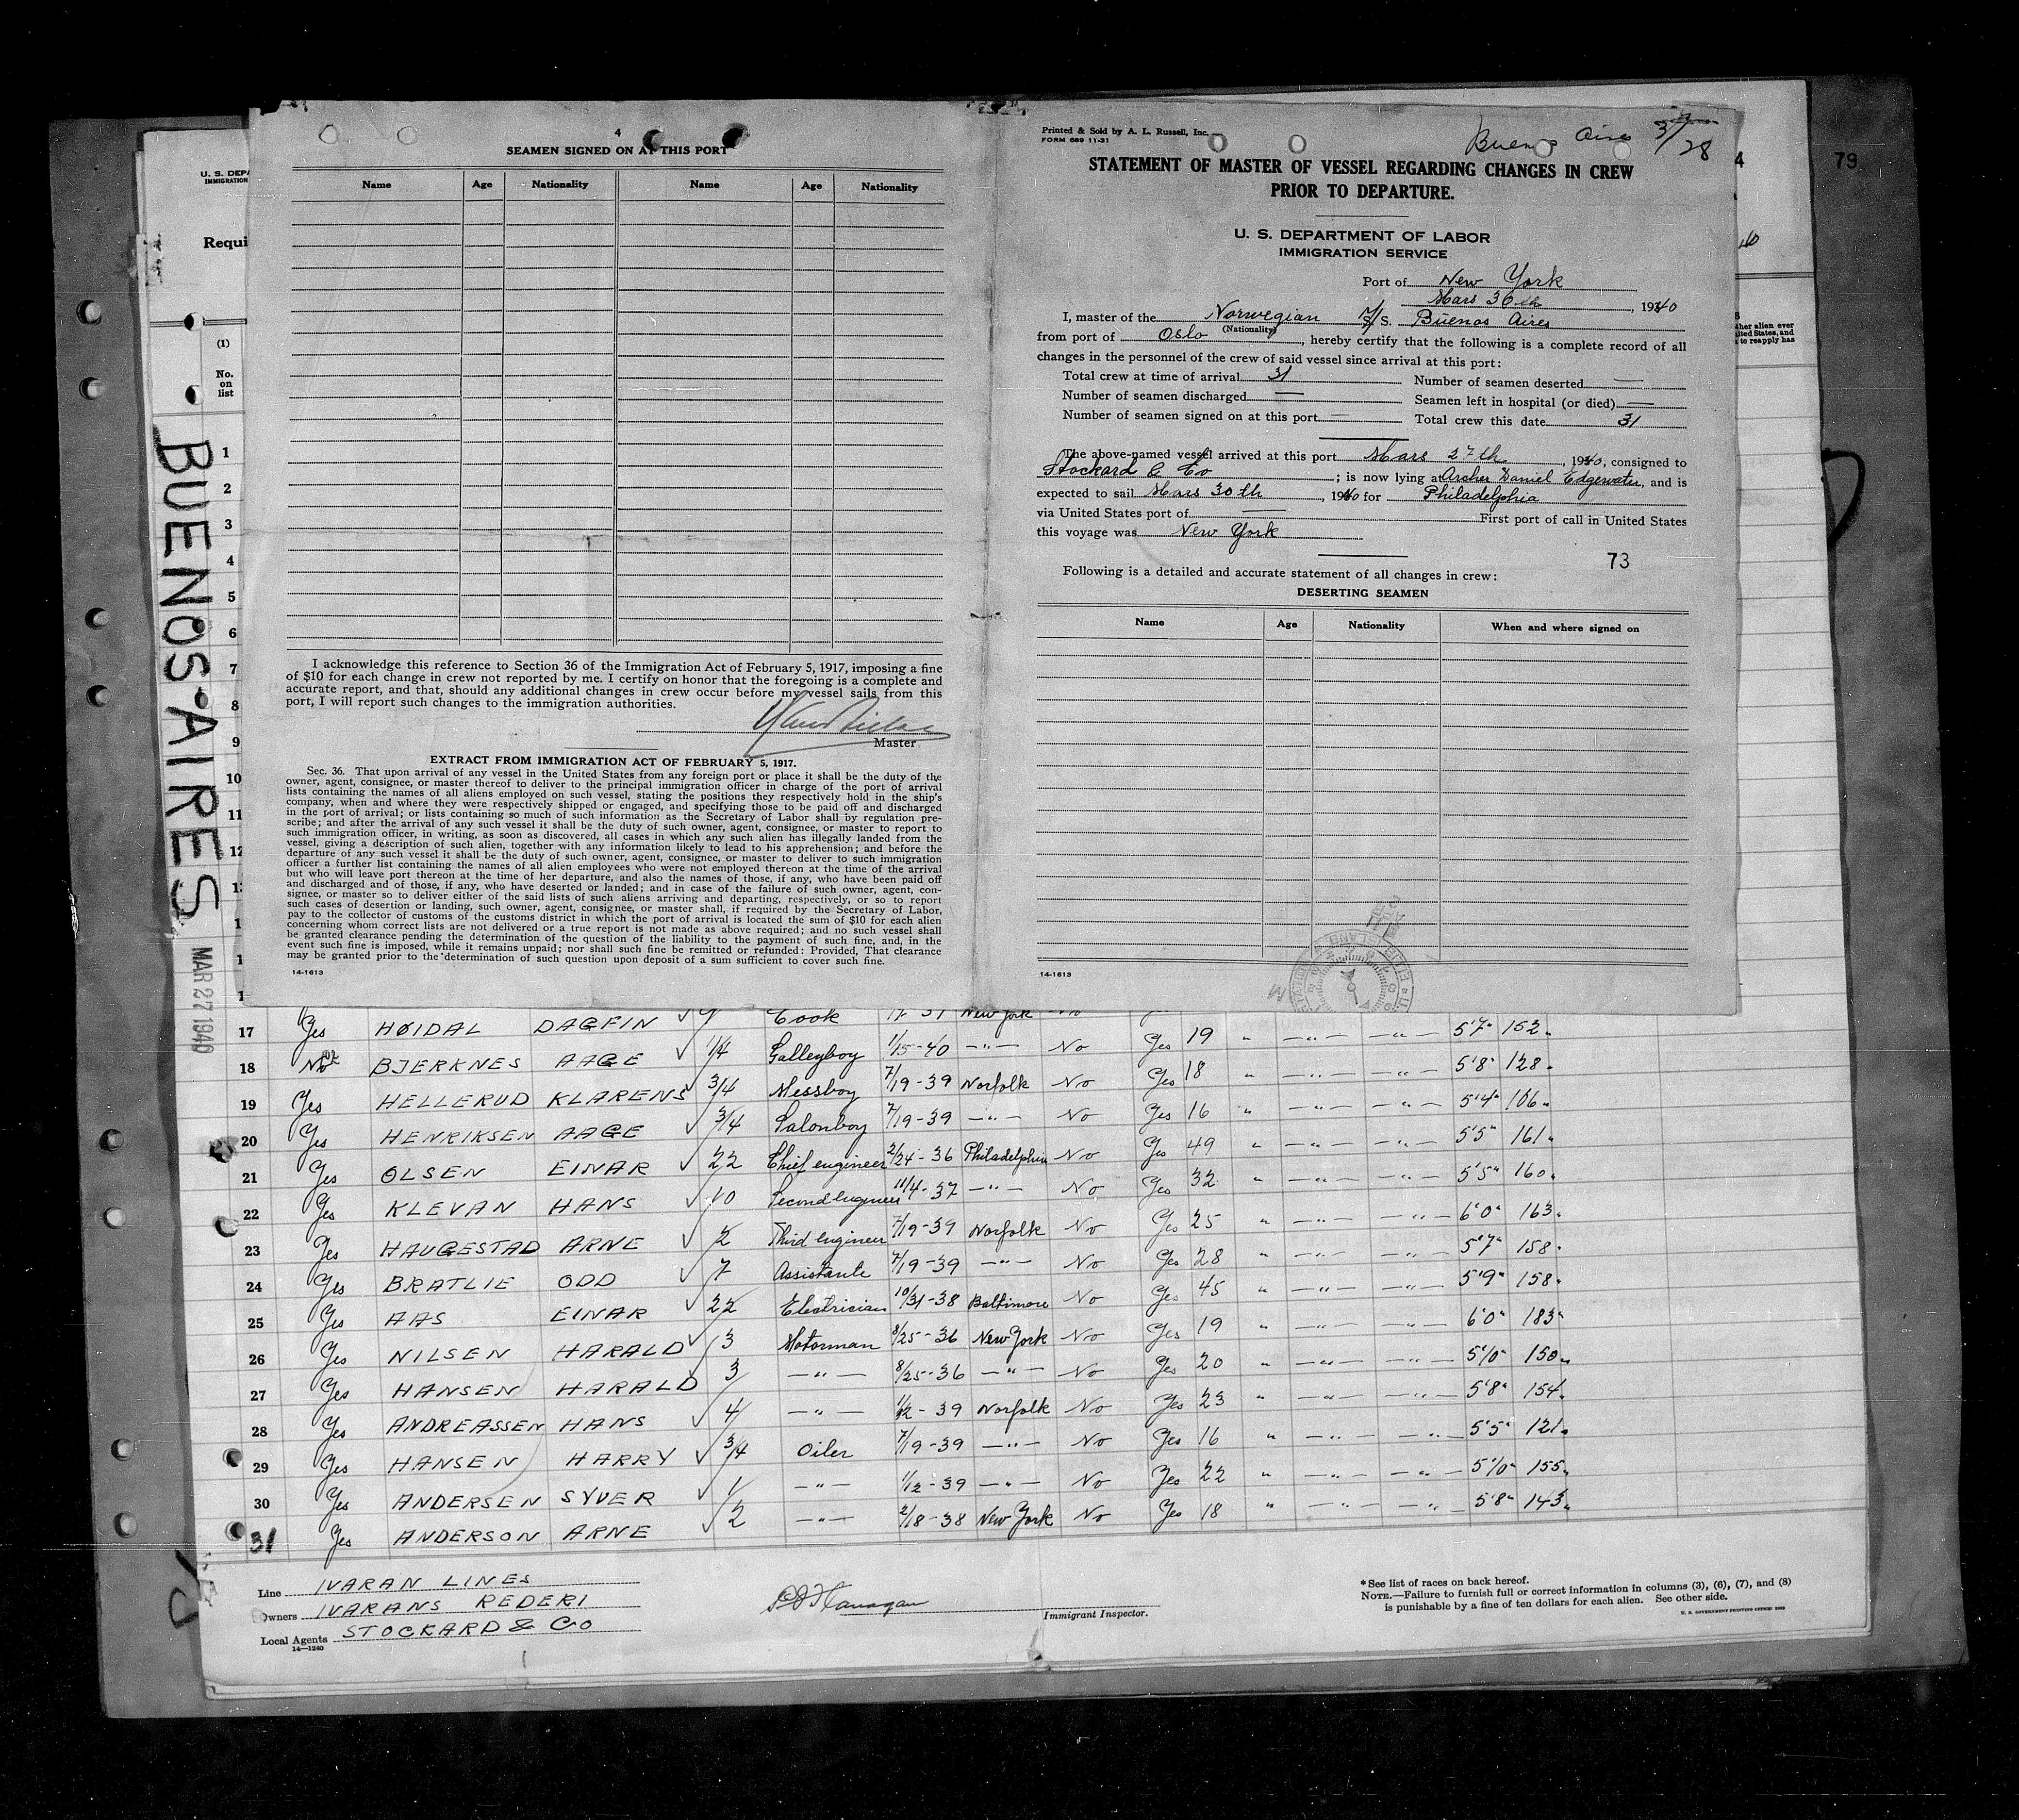 4
SEAMEN SIGNED ON AT THIS PORT
Name Age Nationality Name Age Nationality
I acknowledge this reference to Section 36 of the Immigration Act of February 5, 1917, imposing a fine
of $10 for each change in crew not reported by me. I certify on honor that the foregoing is a complete and
accurate report, and that, should any additional changes in crew occur before my vessel sails from this
port, I will report such changes to the immigration authorities.
Master
EXTRACT FROM IMMIGRATION ACT OF FEBRUARY 5, 1917.
Sec. 36. That upon arrival of any vessel in the United States from any foreign port or place it shall be the duty of the
owner, agent, consignee, or master thereof to deliver to the principal immigration officer in charge of the port of arrival
lists containing the names of all aliens employed on such vessel, stating the positions they respectively hold in the ship's
company, when and where they were respectively shipped or engaged, and specifying those to be paid off and discharged
in the port of arrival; or lists containing so much of such information as the Secretary of Labor shall by regulation pre-
scribe; and after the arrival of any such vessel it shall be the duty of such owner, agent, consignee, or master to report to
such immigration officer, in writing, as soon as discovered, all cases in which any such alien has illegally landed from the
vessel, giving a description of such alien, together with any information likely to lead to his apprehension; and before the
departure of any such vessel it shall be the duty of such owner, agent, consignee, or master to deliver to such immigration
officer a further list containing the names of all alien employees who were not employed thereon at the time of the arrival
but who will leave port thereon at the time of her departure, and also the names of those, if any, who have been paid off
and discharged and of those, if any, who have deserted or landed; and in case of the failure of such owner, agent, con-
signee, or master so to deliver either of the said lists of such aliens arriving and departing, respectively, or so to report
such cases of desertion or landing, such owner, agent, consignee, or master shall, if required by the Secretary of Labor,
pay to the collector of customs of the customs district in which the port of arrival is located the sum of $10 for each alien
concerning whom correct lists are not delivered or a true report is not made as above required; and no such vessel shall
be granted clearance pending the determination of the question of the liability to the payment of such fine, and, in the
event such fine is imposed, while it remains unpaid; nor shall such fine be remitted or refunded: Provided, That clearance
may be granted prior to the determination of such question upon deposit of a sum sufficient to cover such fine.
14-1613
Printed & Sold by A. L. Russell, Inc.
FORM 689 11-31
Buenos Aires 3/28
STATEMENT OF MASTER OF VESSEL REGARDING CHANGES IN CREW
PRIOR TO DEPARTURE.
U. S. DEPARTMENT OF LABOR
IMMIGRATION SERVICE
Port of New York
Mars 30th, 1940
I, master of the Norwegian M/S. Buenos Aires
(Nationality)
from port of Oslo, hereby certify that the following is a complete record of all
changes in the personnel of the crew of said vessel since arrival at this port:
Total crew at time of arrival 31 Number of seamen deserted —
Number of seamen discharged — Seamen left in hospital (or died) —
Number of seamen signed on at this port — Total crew this date 31
The above-named vessel arrived at this port Mars 27th, 1940, consigned to
Stockard & Co; is now lying at Archer Daniel Edgewater, and is
expected to sail Mars 30th, 1940 for Philadelphia
via United States port of — First port of call in United States
this voyage was New York
73
Following is a detailed and accurate statement of all changes in crew:
DESERTING SEAMEN
Name Age Nationality When and where signed on
14-1613
79
U. S. DEPA
IMMIGRATION
Requi
(1)
No.
on
list
BUENOS AIRES
MAR 27 1940
1
2
3
4
5
6
7
8
9
10
11
12
17 Yes HØIDAL DAGFIN Cook New York
18 BJERKNES AAGE 1/4 Galleyboy 1/15-40 —"— No Yes 19 " —"— —"— 5'7" 152
19 Yes HELLERUD KLARENS 3/4 Messboy 7/19-39 Norfolk No Yes 18 " —"— —"— 5'8" 128
20 Yes HENRIKSEN AAGE 3/4 Salonboy 7/19-39 —"— No Yes 16 " —"— —"— 5'4" 106
21 Yes OLSEN EINAR 22 Chief engineer 2/24-36 Philadelphia No Yes 49 " —"— —"— 5'5" 161
22 Yes KLEVAN HANS 10 Second Engineer 11/4-37 —"— No Yes 32 " —"— —"— 5'5" 160
23 Yes HAUGESTAD ARNE 2 Third Engineer 7/19-39 Norfolk No Yes 25 " —"— —"— 6'0" 163
24 Yes BRATLIE ODD 7 Assistante 7/19-39 —"— No Yes 28 " —"— —"— 5'7" 158
25 Yes AAS EINAR 22 Electrician 10/31-38 Baltimore No Yes 45 " —"— —"— 5'9" 158
26 Yes NILSEN HARALD 3 Motorman 8/25-36 New York No Yes 19 " —"— —"— 6'0" 183
27 Yes HANSEN HARALD 3 —"— 8/25-36 —"— No Yes 20 " —"— —"— 5'10" 150
28 Yes ANDREASSEN HANS 4 —"— 1/2-39 Norfolk No Yes 23 " —"— —"— 5'8" 154
29 Yes HANSEN HARRY 3/4 Oiler 7/19-39 —"— No Yes 16 " —"— —"— 5'5" 121
30 Yes ANDERSEN SYVER 1 —"— 1/2-39 —"— No Yes 22 " —"— —"— 5'10" 155
31 Yes ANDERSON ARNE 2 —"— 2/18-38 New York No Yes 18 " —"— —"— 5'8" 143
Line IVARAN LINES
Owners IVARANS REDERI
Local Agents STOCKARD & Co
14—1240
Flanagan
Immigrant Inspector.
*See list of races on back hereof.
NOTE.—Failure to furnish full or correct information in columns (3), (6), (7), and (8)
is punishable by a fine of ten dollars for each alien. See other side.
U. S. GOVERNMENT PRINTING OFFICE